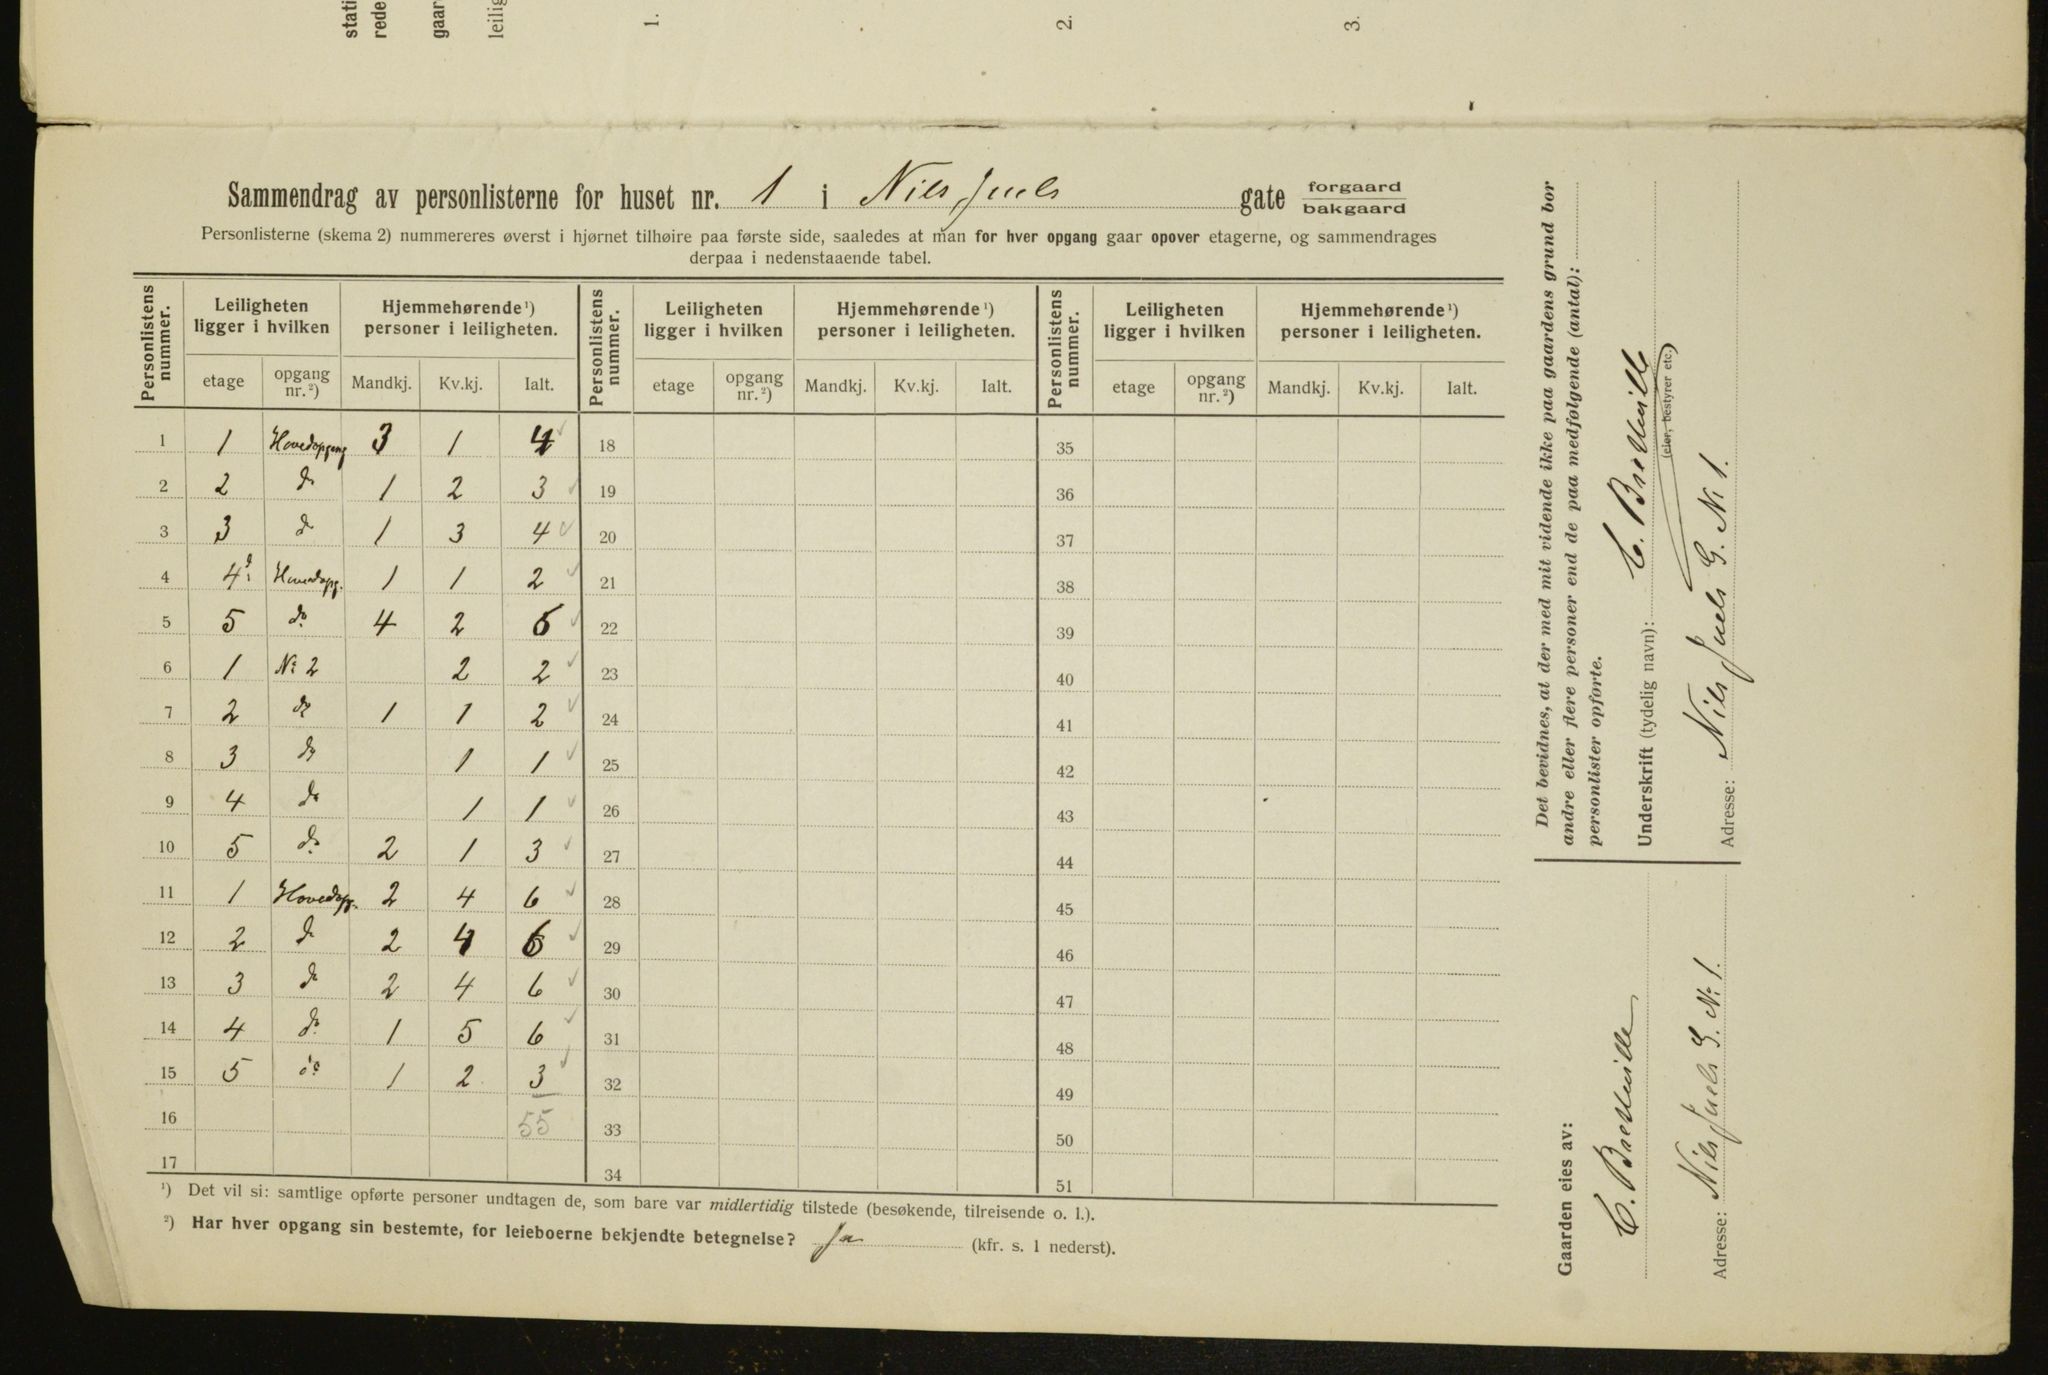 stati
rede
gaar
leilig
1.
2.
3.
Sammendrag av personlisterne for huset nr. 1 i Niels Juels gate forgaard
bakgaard
Personlisterne (skema 2) nummereres øverst i hjørnet tilhøire paa første side, saaledes at man for hver opgang gaar opover etagerne, og sammendrages
derpaa i nedenstaaende tabel.
Personlistens nummer. Leiligheten ligger i hvilken Hjemmehørende ¹) personer i leiligheten. Personlistens nummer. Leiligheten ligger i hvilken Hjemmehørende ¹) personer i leiligheten. Personlistens nummer. Leiligheten ligger i hvilken Hjemmehørende ¹) personer i leiligheten.
etage opgang nr. ²) Mandkj. Kv.kj. Ialt. etage opgang nr. ²) Mandkj. Kv.kj. Ialt. etage opgang nr. ²) Mandkj. Kv.kj. Ialt.
1 1 Hovedopgang 3 1 4 18 35
2 2 do 1 2 3 19 36
3 3 do 1 3 4 20 37
4 4 Hovedopg. 1 1 2 21 38
5 5 do. 4 2 6 22 39
6 1 No 2 2 2 23 40
7 2 do 1 1 2 24 41
8 3 do 1 1 25 42
9 4 do 1 1 26 43
10 5 do. 2 1 3 27 44
11 1 Hovedopg. 2 4 6 28 45
12 2 do 2 4 6 29 46
13 3 do 2 4 6 30 47
14 4 do. 1 5 6 31 48
15 5 do 1 2 3 32 49
16 55 33 50
17 34 51
¹) Det vil si: samtlige opførte personer undtagen de, som bare var midlertidig tilstede (besøkende, tilreisende o. l.).
²) Har hver opgang sin bestemte, for leieboerne bekjendte betegnelse? Ja (kfr. s. 1 nederst).
Det bevidnes, at der med mit vidende ikke paa gaardens grund bor
andre eller flere personer end de paa medfølgende (antal):
personlister opførte.
Underskrift (tydelig navn): C.
(eier, bestyrer etc.)
Adresse: Niels Juels G. No 1.
Gaarden eies av:
C.
Adresse: Niels Juels G. No 1.